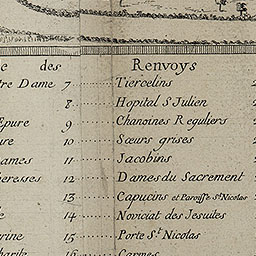 e des Renvoys
tre Dame 7 Tiercelins
8 Hopital St Julien
Epure 9 Chanoines Reguliers
ure 10 Sœurs grises
ames 11 Jacobins
eresses 12 Dames du Sacrement
13 Capucins et Paroisse St Nicolas
e 14 Noviciat des Jesuites
rine 15 Porte St Nicolas
harité 16 Carmes